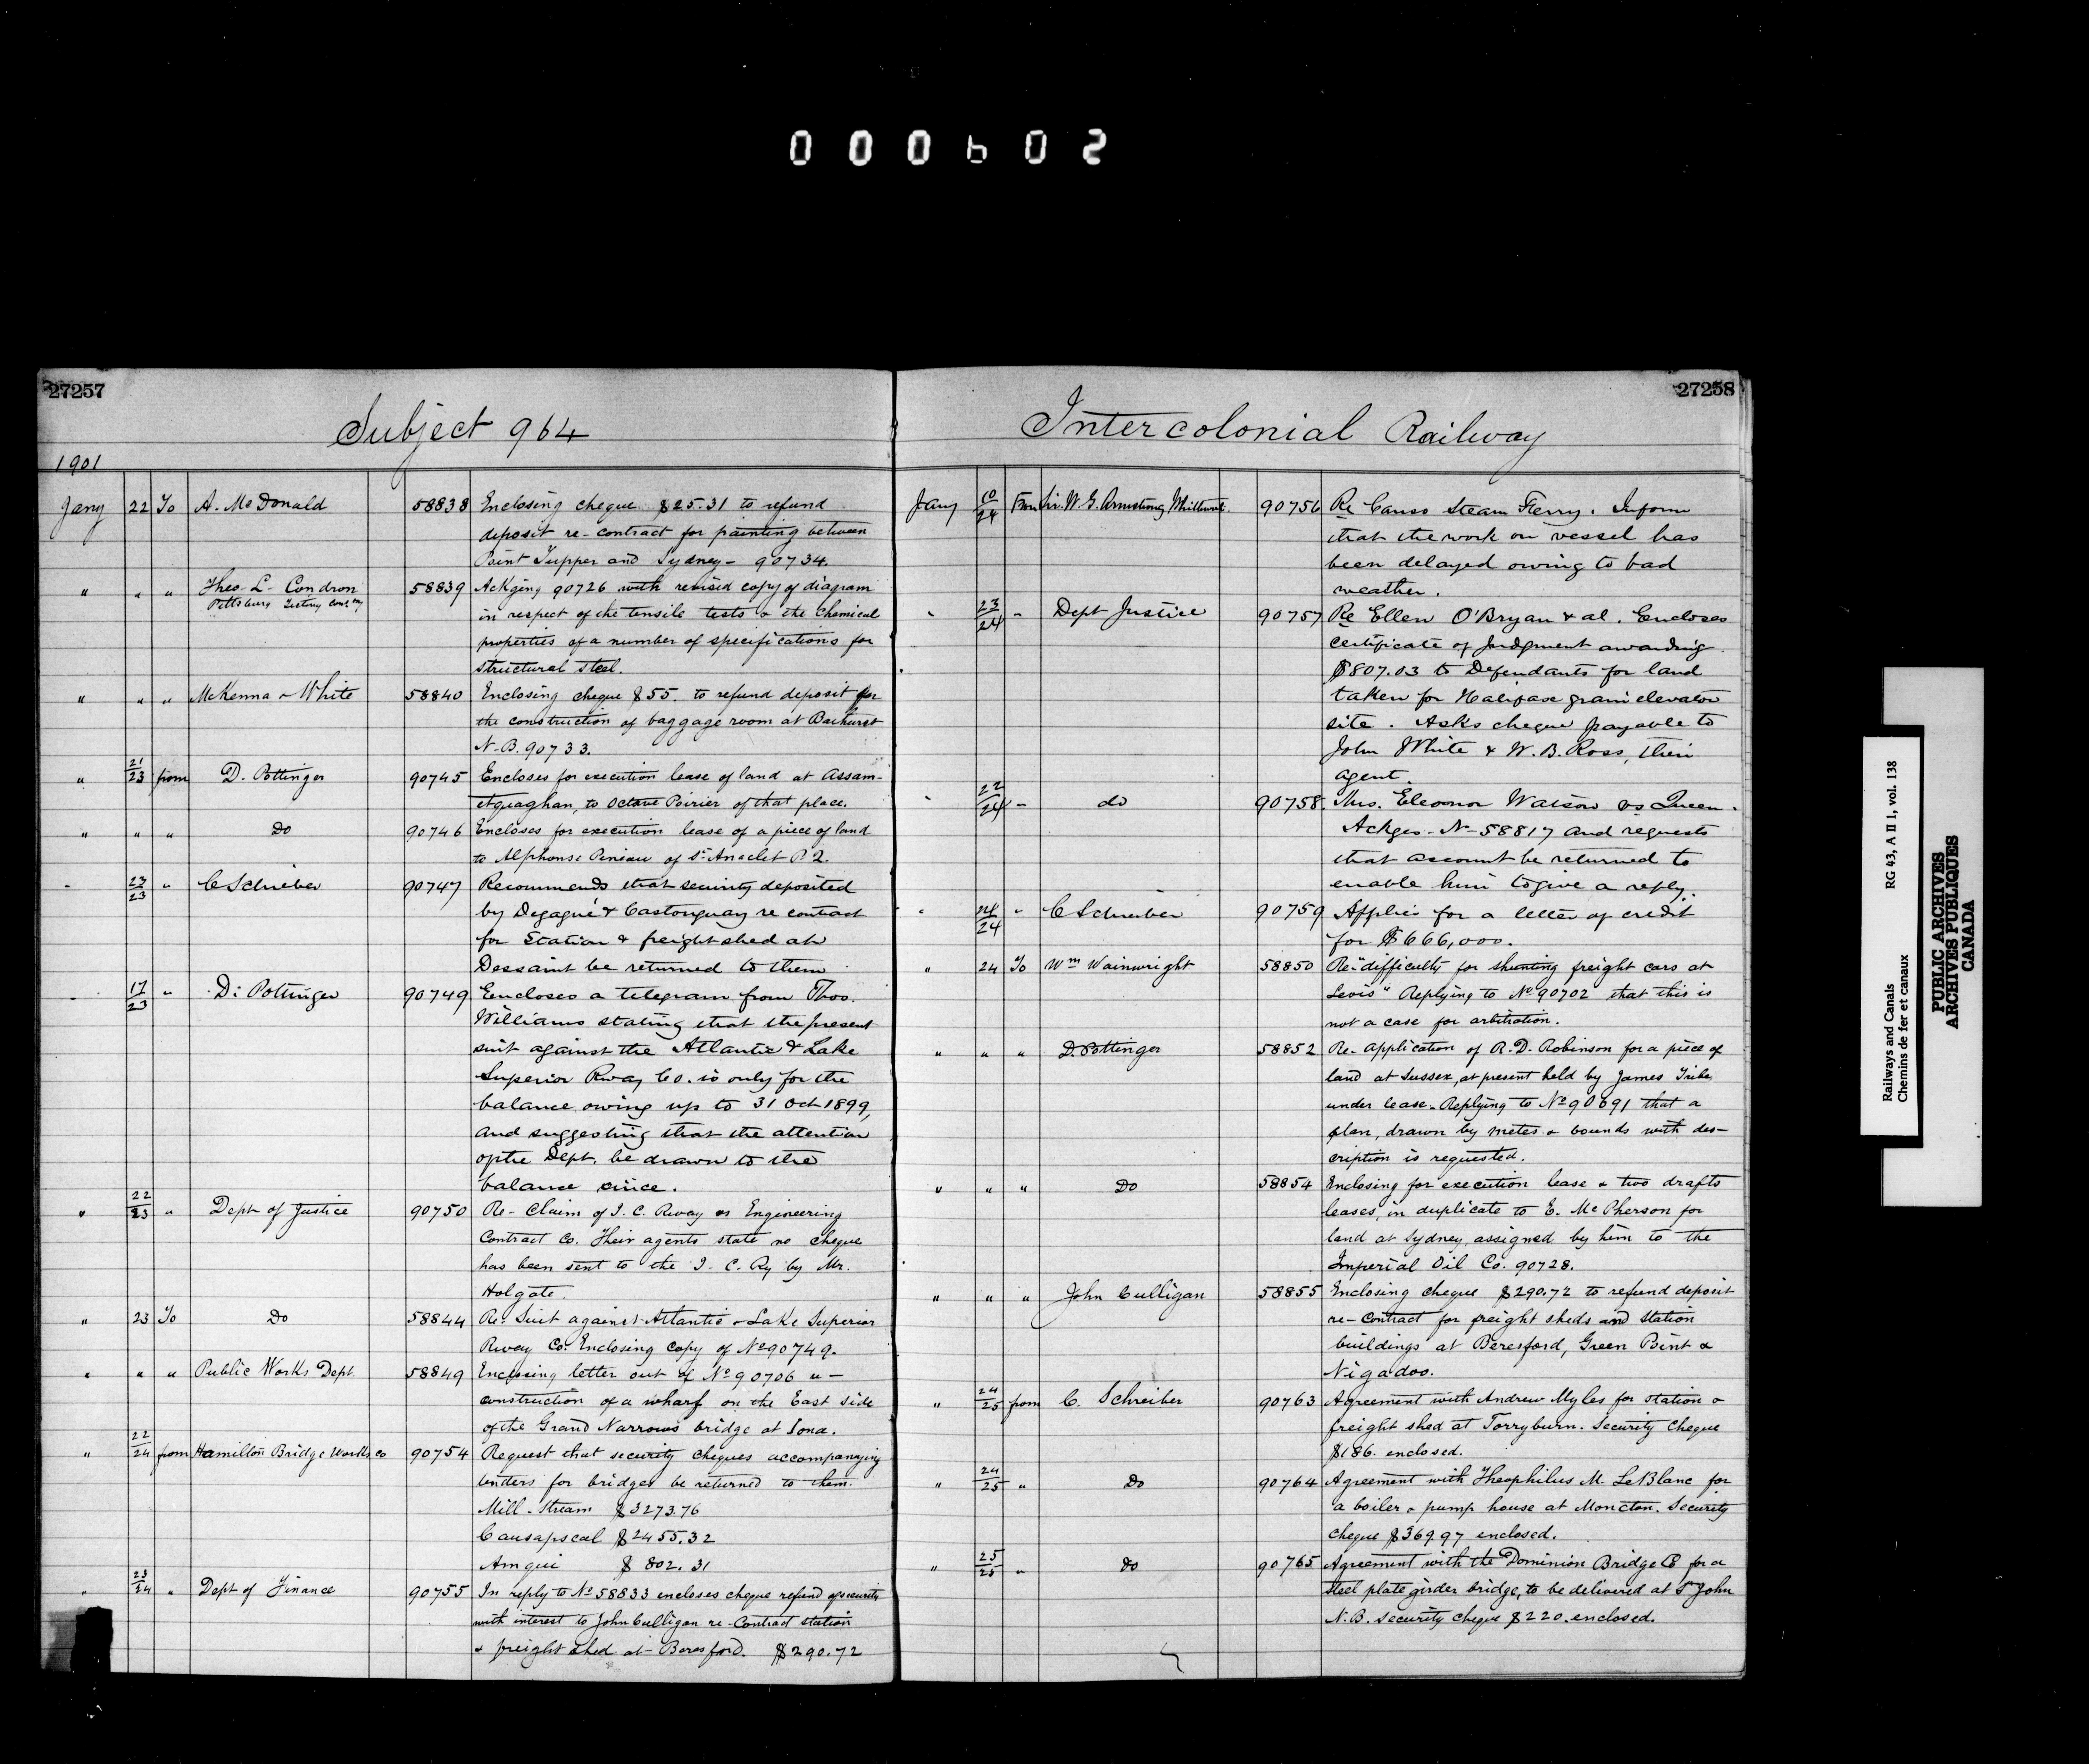 000602
27257
Subject 964
1901
Jany 22 To A. McDonald 58838 Enclosing cheque $25.31 to refund
deposit re-contract for painting between
Point Tupper and Sydney - 90734.
" " " Theo. L. Condron 58839 Ackging 90726 with revised copy of diagram
Pittsburg Testing
in respect of the tensile tests & the Chemical
properties of a number of specifications for
structural steel.
" " " McKenna & White 58840 Enclosing cheque $55. to refund deposit for
the construction of baggage room at Bathurst
N-B. 90733.
" 21/23 from D. Pottinger 90745 Encloses for execution lease of land at Assam-
etquaghan, to Octave Poirier of that place.
" " " Do 90746 Encloses for execution lease of a piece of land
to Alphonse Pineau of St. Anaclet P.Q.
" 23/23 " C Schreiber 90747 Recommends that security deposited
by Degagné & Castonguay re contract
for Station & freight shed at
Dessaint be returned to them
" 17/23 " D. Pottinger 90749 Encloses a telegram from Thos.
Williams stating that the present
suit against the Atlantic & Lake
Superior Rway Co. is only for the
balance owing up to 31 Oct 1899,
and suggesting that the attention
of the Dept. be drawn to the
balance since.
" 22/23 " Dept of Justice 90750 Re- Claim of I. C. Rway vs Engineering
Contract Co. Their agents state no cheque
has been sent to the I. C. Ry by Mr.
Holgate.
" 23 To Do 58844 Re. Suit against Atlantic & Lake Superior
Rway Co. Enclosing copy of No 90749.
" " " Public Works Dept 58849 Enclosing letter out of No 90706 re-
construction of a wharf on the East side
of the Grand Narrows bridge at Iona.
" 22/24 from Hamilton Bridge Works Co 90754 Request that security cheques accompanying
tenders for bridges be returned to them.
Mill-Stream $3273.76
Causapscal $2455.32
Amqui $ 802.31
" 23/24 " Dept of Finance 90755 In reply to No 58833 encloses cheque refund of security
with interest to John Culligan re-Contract station
& freight shed at Beresford. $290.72
27258
Intercolonial Railway
Jany 10/24 From Sir. W. G. Armstrong Whitworth 90756 Re Canso Steam Ferry. Inform
that the work on vessel has
been delayed owing to bad
weather.
" 23/24 " Dept Justice 90757 Re Ellen O'Bryan & al. Encloses
certificate of Judgment awarding
$807.03 to Defendants for land
taken for Halifax grain elevator
site. Asks cheque payable to
John White & W. B. Ross, their
agent.
" 22/24 " do 90758. Mrs. Eleonor Watson vs Queen.
Ackges. No-58817 and requests
that account be returned to
enable him to give a reply.
" 24/24 " C Schreiber 90759 Applies for a letter of credit
for $666,000.
" 24 To Wm Wainwright 58850 Re "difficulty for shunting freight cars at
Levis" Replying to No 90702 that this is
not a case for arbitration.
" " " D. Pottinger 58852 Re- application of R. D. Robinson for a piece of
land at Sussex, at present held by James
under lease. Replying to No 90691 that a
plan, drawn by metes & bounds with des-
cription is requested.
" " " Do 58854 Enclosing for execution lease & two drafts
leases, in duplicate to E. McPherson for
land at Sydney, assigned by him to the
Imperial Oil Co. 90728.
" " " John Culligan 58855 Enclosing cheque $290.72 to refund deposit
re-Contract for freight sheds and station
buildings at Beresford, Green Point &
Nigadoo.
" 24/25 from C. Schreiber 90763 Agreement with Andrew Myles for station &
freight shed at Torryburn. Security Cheque
$186. enclosed.
" 24/25 " Do 90764 Agreement with Theophilus M. LeBlanc for
a boiler & pump house at Moncton. Security
cheque $369.97 enclosed.
" 25/25 " Do 90765 Agreement with the Dominion Bridge Co for a
steel plate girder bridge, to be delivered at St John
N.B. security cheque $220. enclosed.
Railways and Canals RG 43, A II 1, vol. 138
Chemins de fer et canaux
PUBLIC ARCHIVES
ARCHIVES PUBLIQUES
CANADA